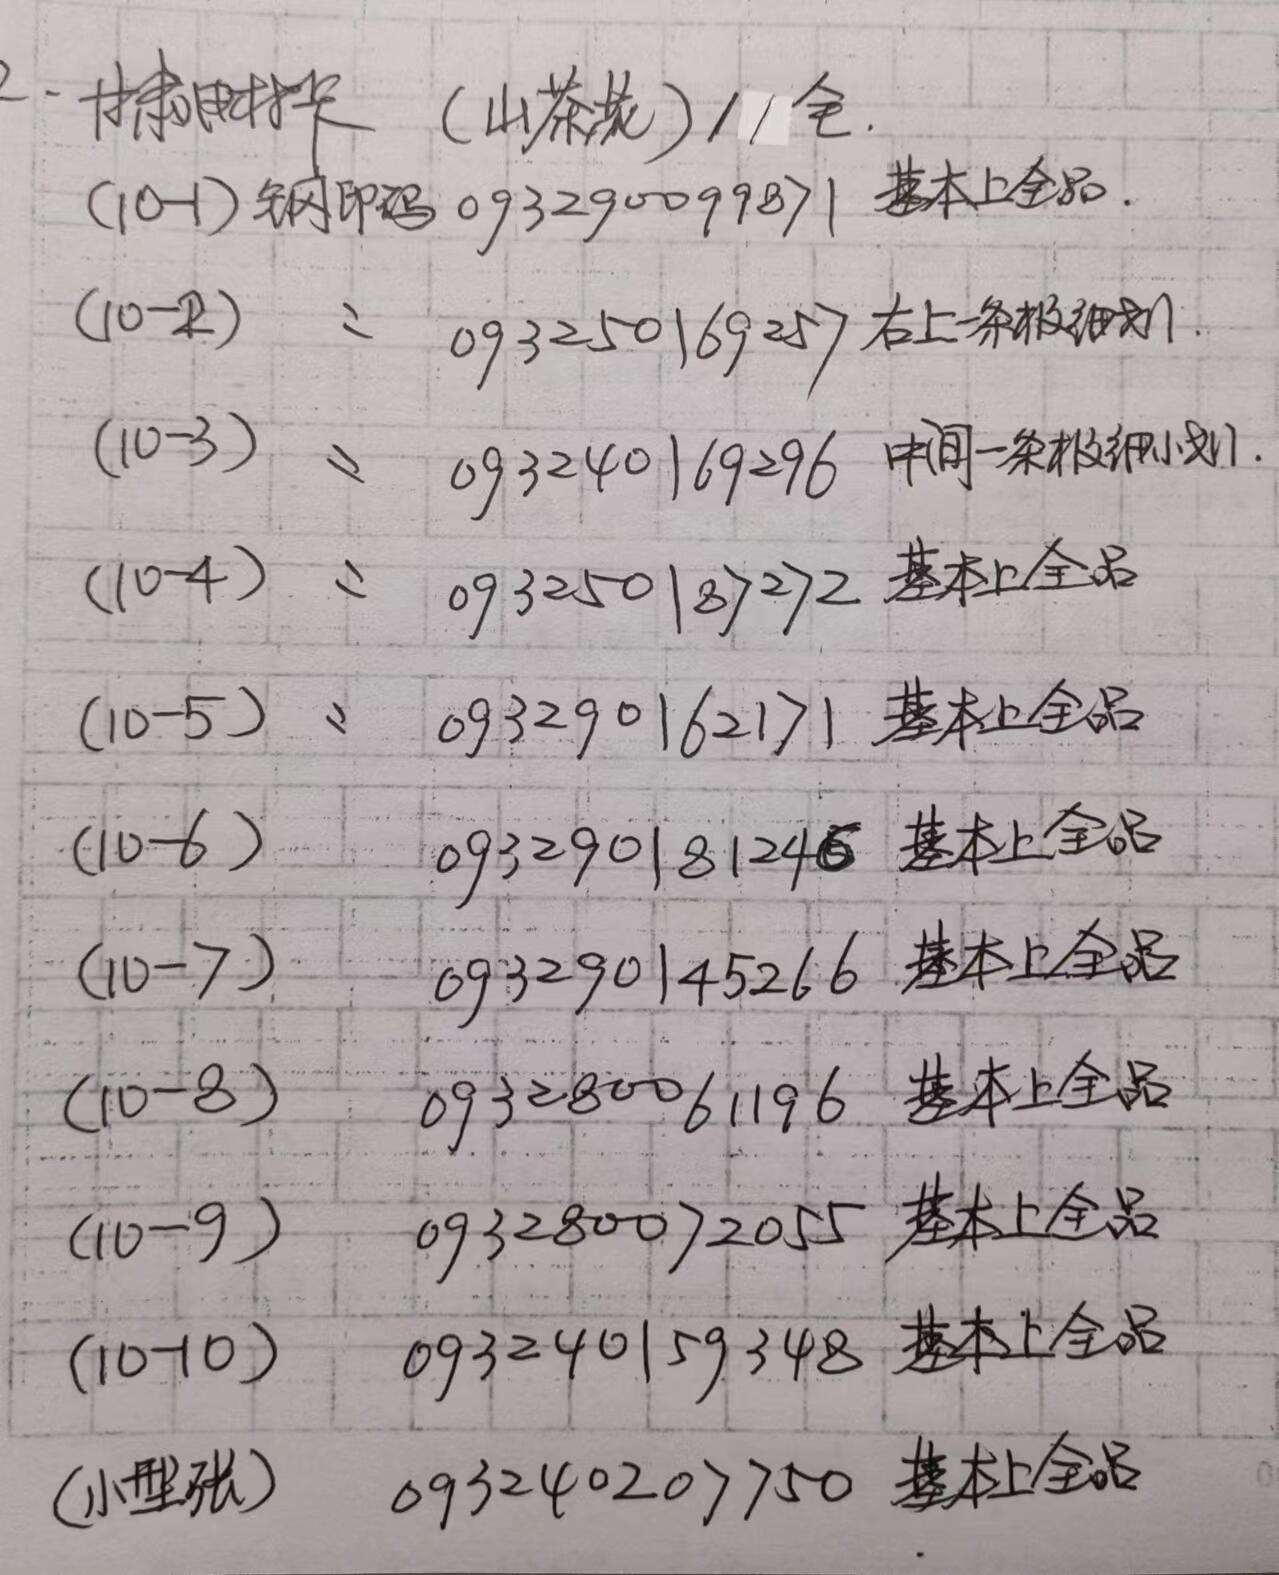 2. 甘肃田村卡 (山茶花) 11全.
(10-1) 钢印码 093290099871 基本上全品.
(10-2) 〃 093250169257 右上一条极细划.
(10-3) 〃 093240169296 中间一条极细小划.
(10-4) 〃 093250187272 基本上全品
(10-5) 〃 093290162171 基本上全品
(10-6) 093290181246 基本上全品
(10-7) 093290145266 基本上全品
(10-8) 093280061196 基本上全品
(10-9) 093280072055 基本上全品
(10-10) 093240159348 基本上全品
(小型张) 093240207750 基本上全品